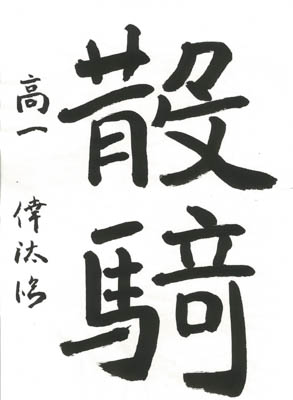 散騎
高一 偉汰